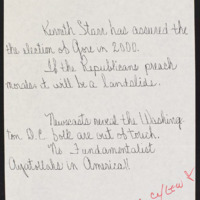 Kenneth Starr has assured the
the election of Gore in 2000.
If the Republicans preach
morales it will be a landslide.
Newscasts reveal the Washing-
ton D.C. folk are out of touch.
No Fundamentalist
Ayatollahs in America!!